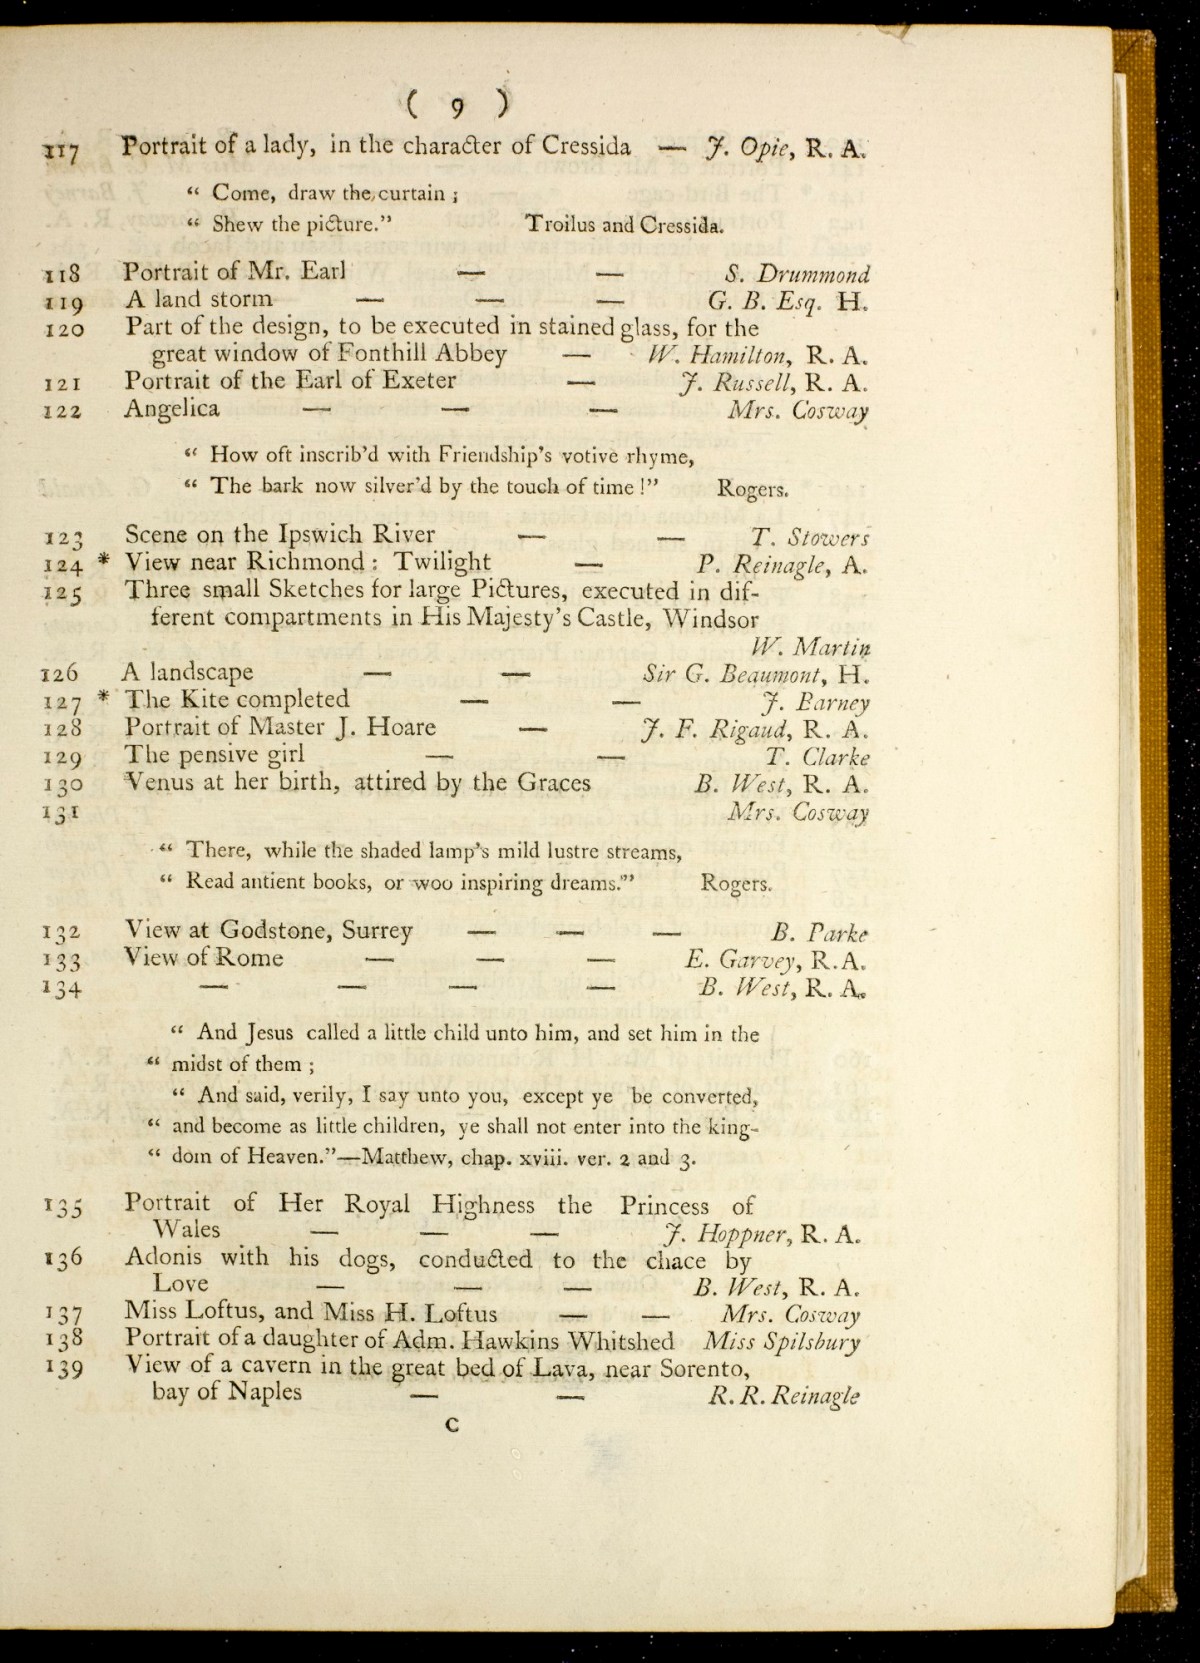 ( 9 )
117 Portrait of a lady, in the character of Cressida — J. Opie, R. A.
“ Come, draw the curtain ;
“ Shew the picture.” Troilus and Cressida.
118 Portrait of Mr. Earl — — S. Drummond
119 A land storm — — — G. B. Esq. H.
120 Part of the design, to be executed in stained glass, for the
great window of Fonthill Abbey — W. Hamilton, R. A.
121 Portrait of the Earl of Exeter — J. Russell, R. A.
122 Angelica — — — Mrs. Cosway
“ How oft inscrib’d with Friendship’s votive rhyme,
“ The bark now silver’d by the touch of time !” Rogers.
123 Scene on the Ipswich River — — T. Stowers
124 * View near Richmond : Twilight — P. Reinagle, A.
125 Three small Sketches for large Pictures, executed in dif-
ferent compartments in His Majesty’s Castle, Windsor
W. Martin
126 A landscape — — Sir G. Beaumont, H.
127 * The Kite completed — — J. Barney
128 Portrait of Master J. Hoare — J. F. Rigaud, R. A.
129 The pensive girl — — T. Clarke
130 Venus at her birth, attired by the Graces B. West, R. A.
131 Mrs. Cosway
“ There, while the shaded lamp’s mild lustre streams,
“ Read antient books, or woo inspiring dreams.” Rogers.
132 View at Godstone, Surrey — — — B. Parke
133 View of Rome — — — E. Garvey, R.A.
134 — — — — B. West, R. A.
“ And Jesus called a little child unto him, and set him in the
“ midst of them ;
“ And said, verily, I say unto you, except ye be converted,
“ and become as little children, ye shall not enter into the king-
“ dom of Heaven.”—Matthew, chap. xviii. ver. 2 and 3.
135 Portrait of Her Royal Highness the Princess of
Wales — — — J. Hoppner, R. A.
136 Adonis with his dogs, conducted to the chace by
Love — — — B. West, R. A.
137 Miss Loftus, and Miss H. Loftus — — Mrs. Cosway
138 Portrait of a daughter of Adm. Hawkins Whitshed Miss Spilsbury
139 View of a cavern in the great bed of Lava, near Sorento,
bay of Naples — — R. R. Reinagle
C